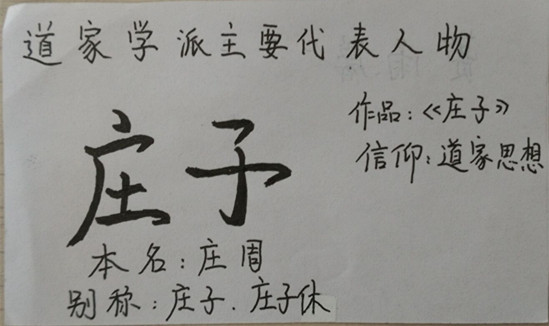 道家学派主要代表人物
庄子
作品：《庄子》
信仰：道家思想
本名：庄周
别称：庄子．庄子休